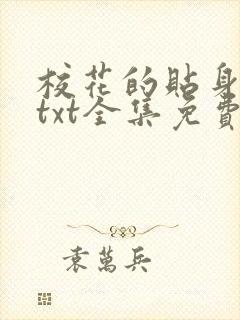 校花的貼身
txt全集免費
袁萬兵